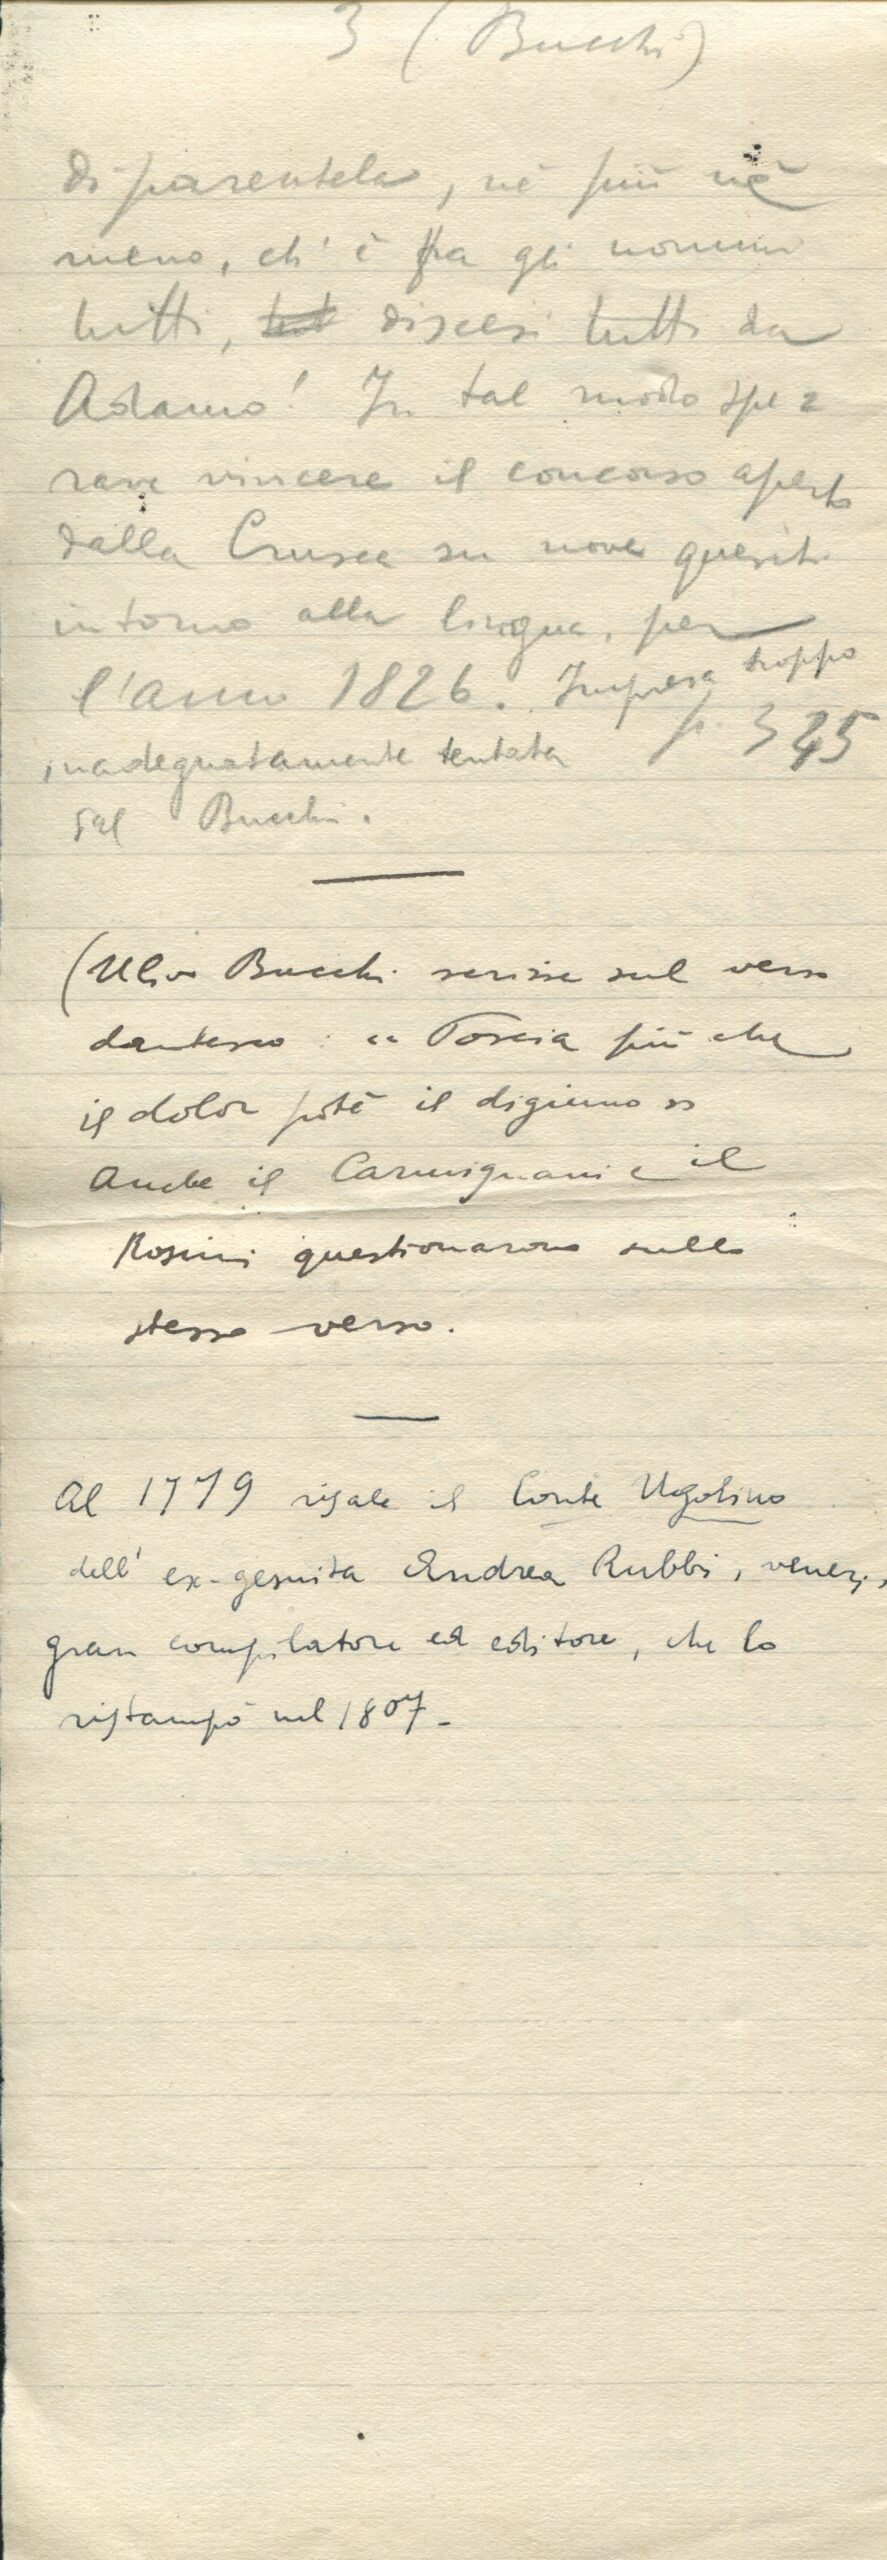 3 (Bucchi)
di parentela, nè più nè
meno, ch' è fra gli uomini
tutti, tut discesi tutti da
Adamo! In tal modo spe=
rava vincere il concorso aperto
dalla Crusca su nove quesiti
intorno alla lingua, per
l'anno 1826. Impresa troppo
inadeguatamente tentata p. 345
dal Bucchi.
(Ulivo Bucchi scrisse sul verso
dantesco: « Poscia più che
il dolor potè il digiuno »
Anche il Carmignani e il
Rosini questionarono sullo
stesso verso.
Al 1779 risale il Conte Ugolino
dell' ex-gesuita Andrea Rubbi, venez.,
gran compilatore ed editore, che lo
ristampò nel 1807.